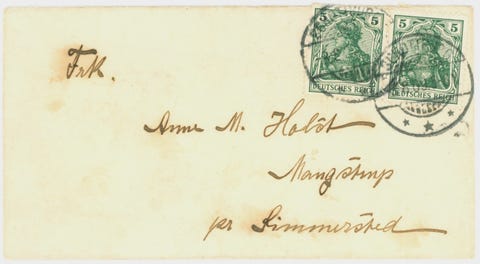 5 5
DEUTSCHES REICH DEUTSCHES REICH
Frk.
Anne M. Holst
Mangstrup
pr Simmersted